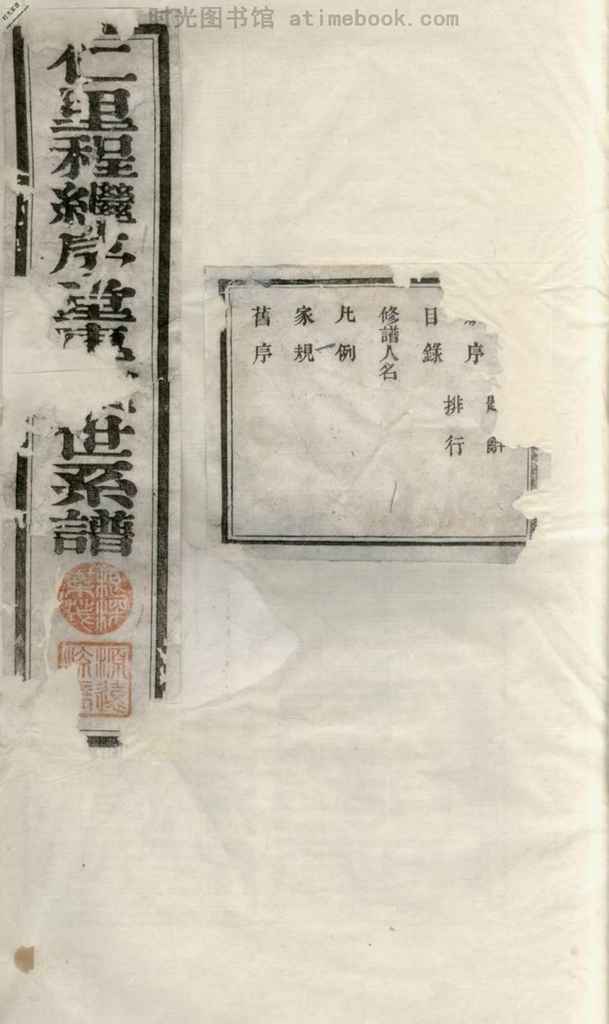 时光图书馆 atimebook.com
仁里程繼序堂專世系譜
序
排行
目錄
修譜人名
凡例
家規
舊序